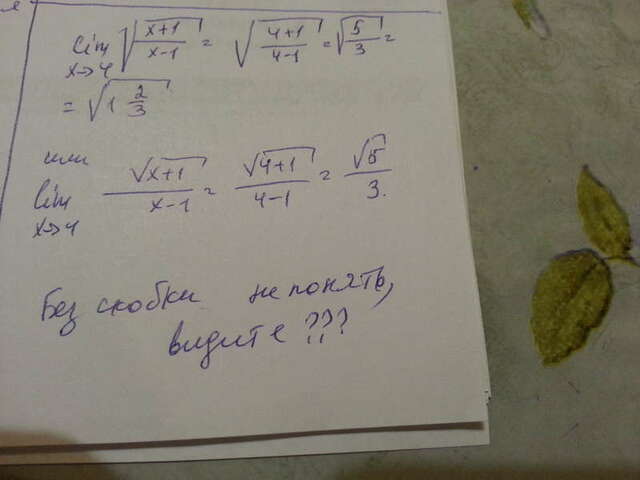 lim x→4 √((x+1)/(x-1)) = √((4+1)/(4-1)) = √(5/3) =
= √(1 2/3)
или
lim x→4 √(x+1)/(x-1) = √(4+1)/(4-1) = √5/3.
Без скобки не понять,
видите ???